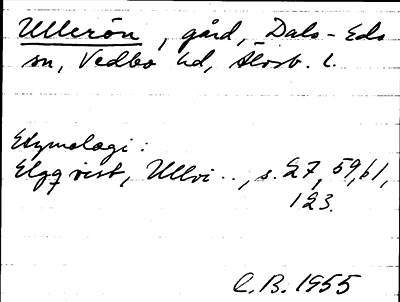 Ullerön, gård, Dals-Eds
sn, Vedbo hd, Älvsb. l.
Etymologi:
Elgqvist, Ullvi.., s. 27, 59, 61,
123.
C.B. 1955